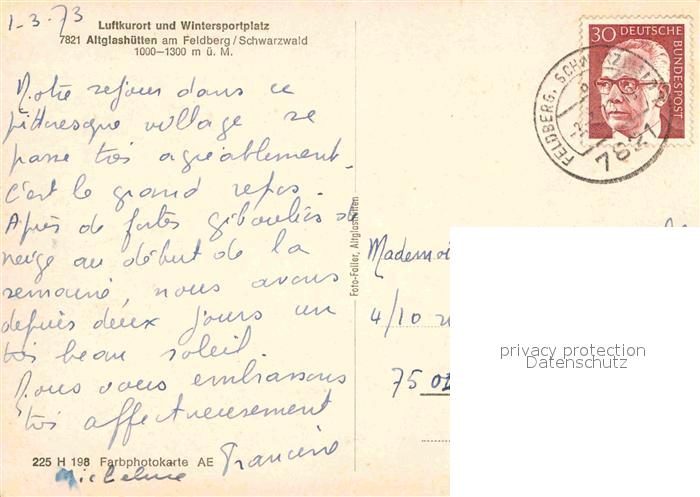 1-3-73
Luftkurort und Wintersportplatz
7821 Altglashütten am Feldberg / Schwarzwald
1000—1300 m ü. M.
Notre séjour dans ce
pittoresque village se
passe très agréablement.
C'est le grand repos.
Après de fortes giboulées de
neige au début de la
semaine, nous avons
depuis deux jours un
très beau soleil.
Nous vous embrassons
très affectueusement
Francine
Micheline
225 H 198 Farbphotokarte AE
Foto-Faller, Altglashütten
30 DEUTSCHE
BUNDESPOST
FELDBERG, SCHWARZWALD
7821
Mademoi
4/10
75
privacy protection
Datenschutz